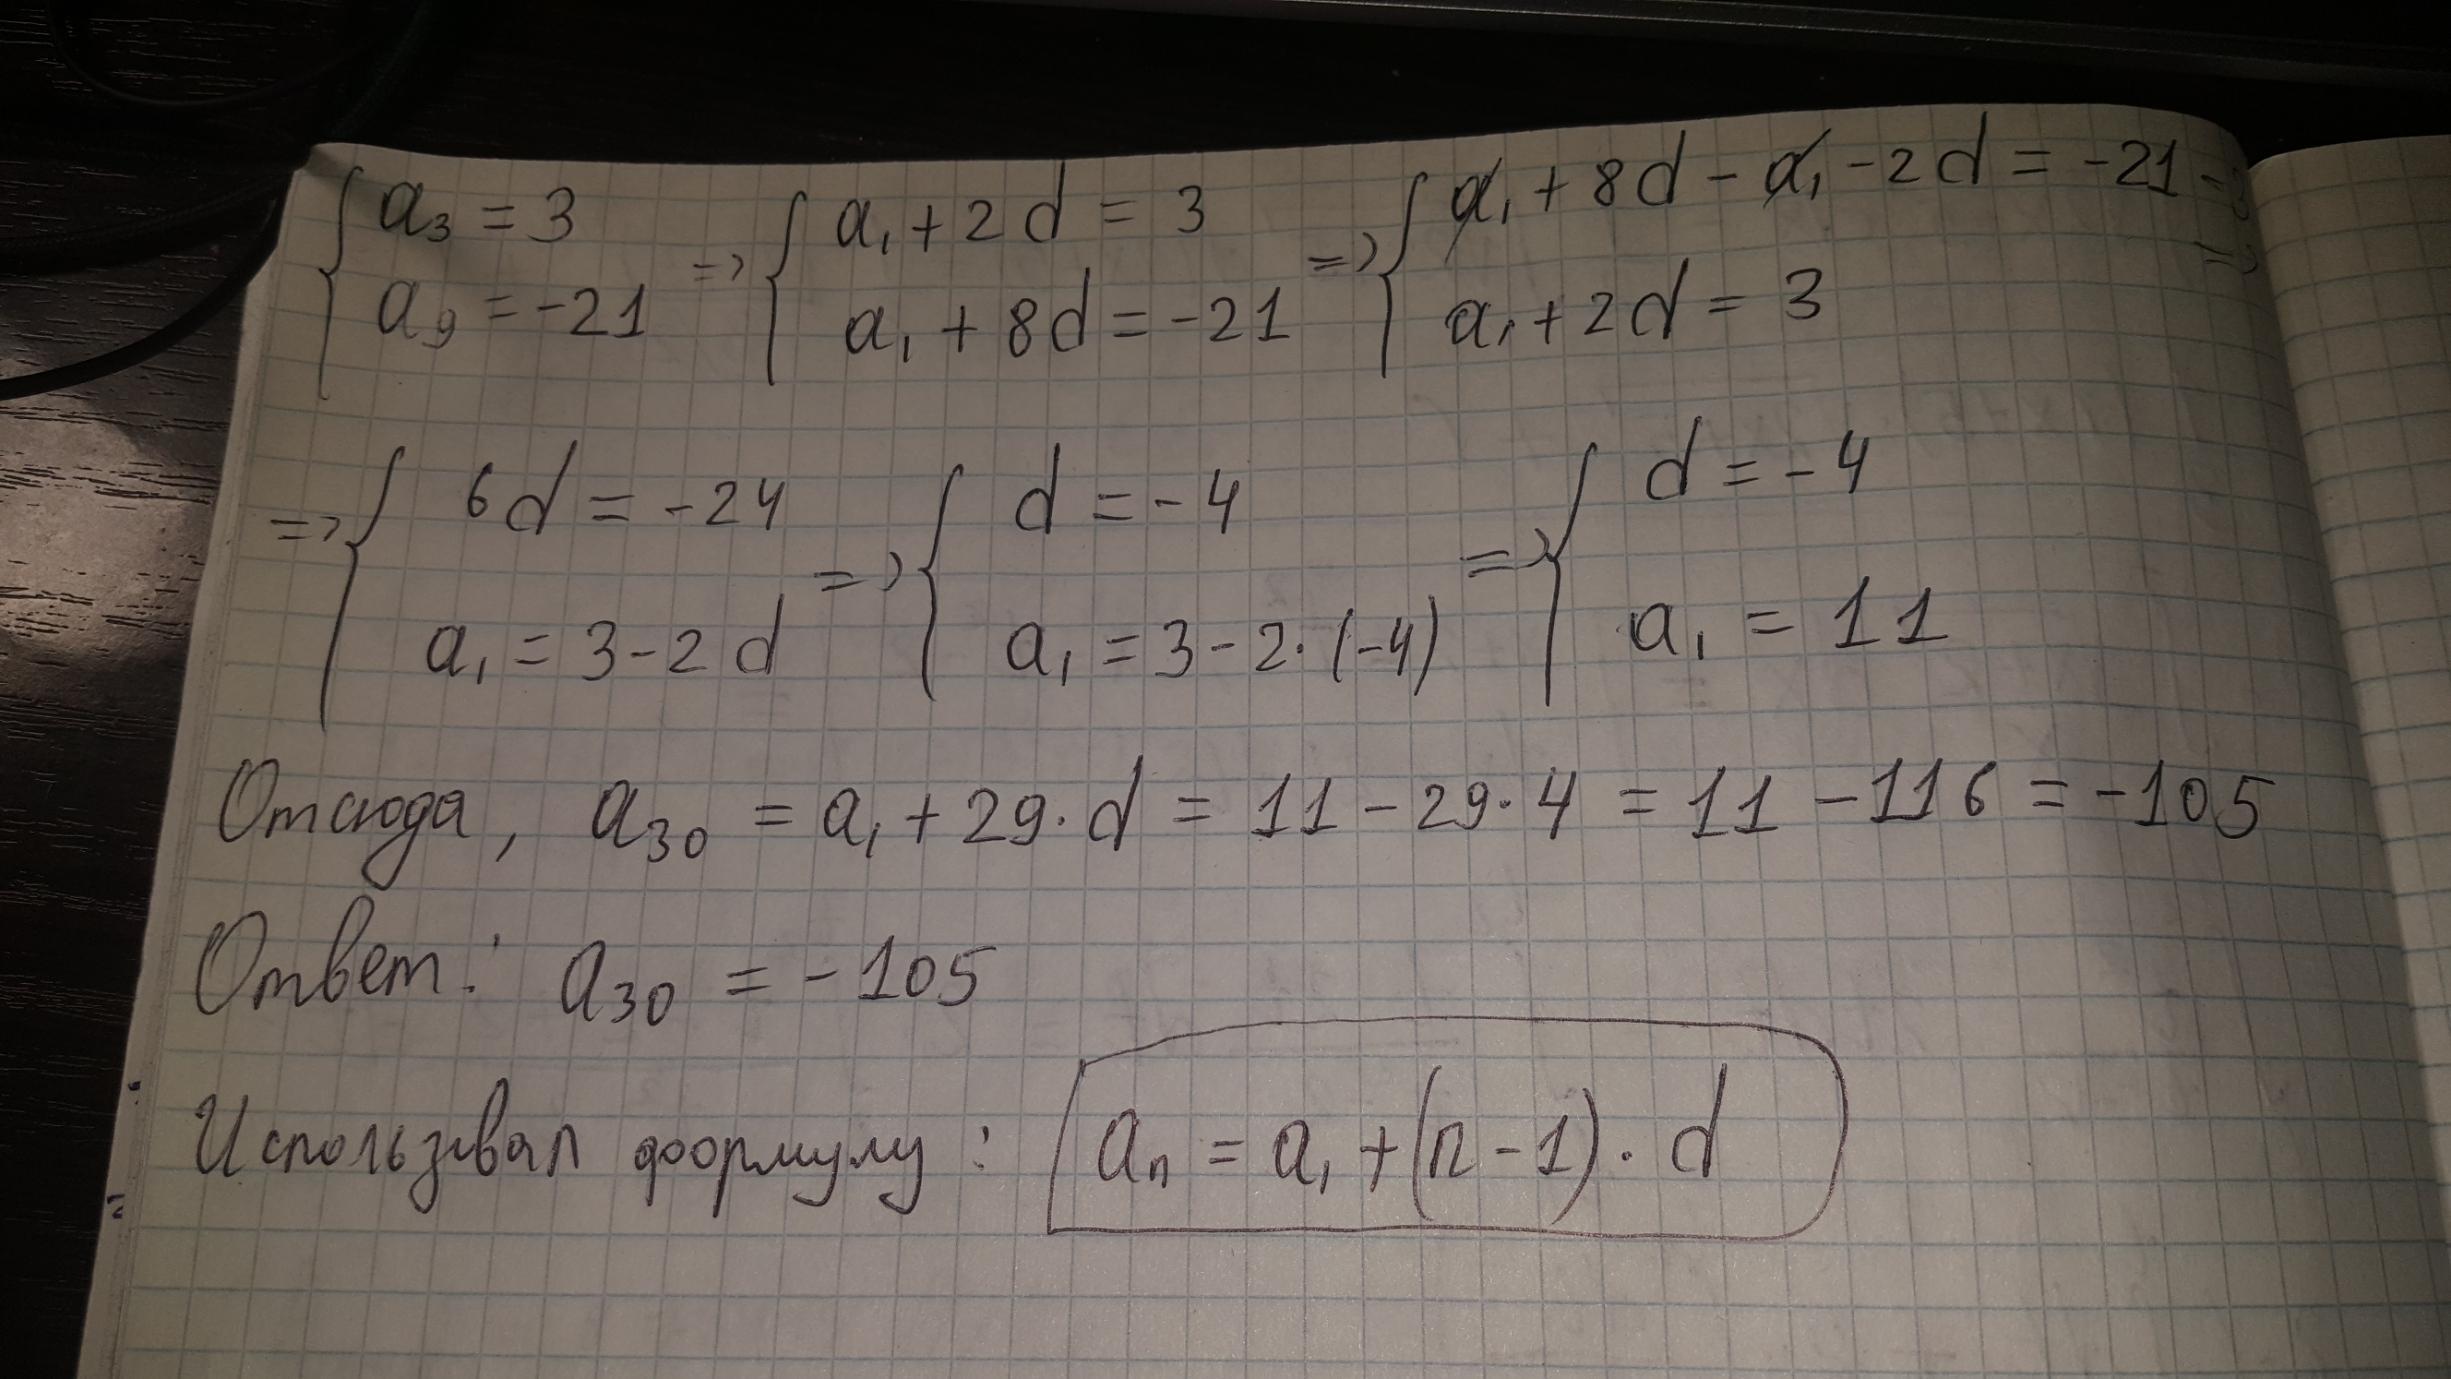 { a₃ = 3 => { a₁ + 2d = 3 => { a₁ + 8d - a₁ - 2d = -21 - 3 =>
a₉ = -21 a₁ + 8d = -21 a₁ + 2d = 3
=> { 6d = -24 => { d = -4 => { d = -4
a₁ = 3 - 2d a₁ = 3 - 2·(-4) a₁ = 11
Отсюда, a₃₀ = a₁ + 29·d = 11 - 29·4 = 11 - 116 = -105
Ответ: a₃₀ = -105
Использвал формулу: aₙ = a₁ + (n - 1)·d